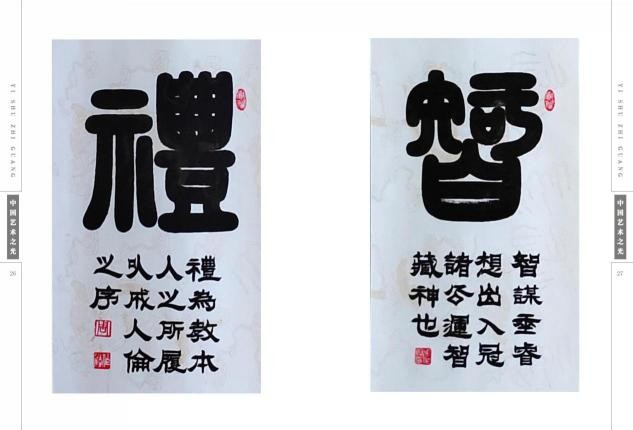 YI SHU ZHI GUANG
中国艺术之光
26
禮
禮為教本
人之所履
以成人倫
之序
智
智謀垂睿
想出入冠
諸公運智
藏神也
YI SHU ZHI GUANG
中国艺术之光
27